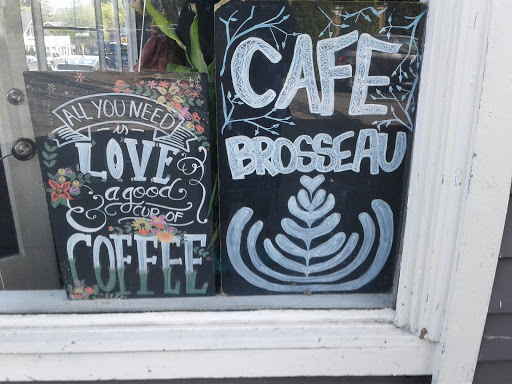 ALL YOU NEED
is
LOVE
& a good
CUP OF
COFFEE
CAFE
BROSSEAU